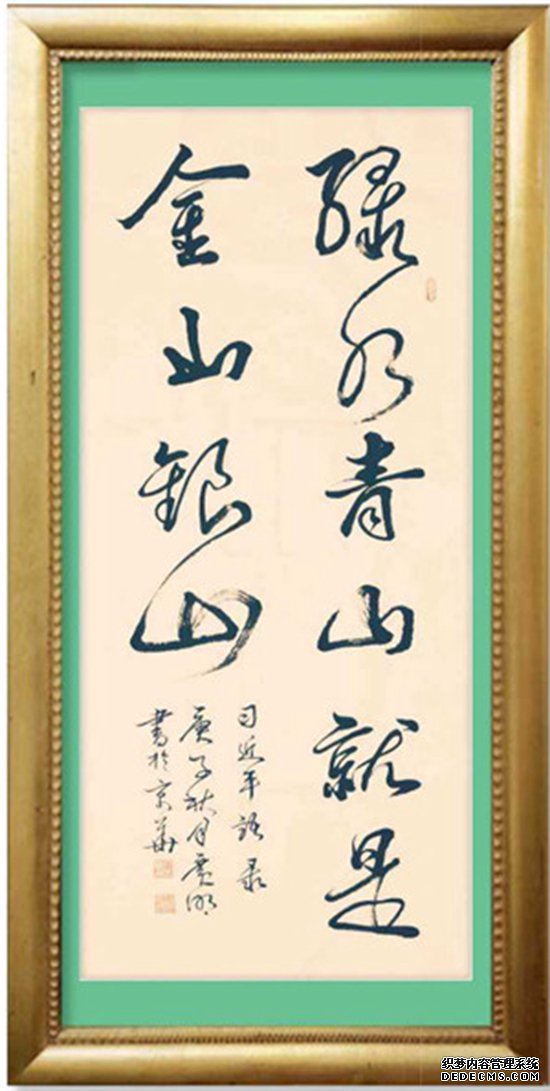 绿水青山就是
金山銀山
习近平語录
庚子秋月
書於京華
织梦内容管理系统
DEDECMS.COM